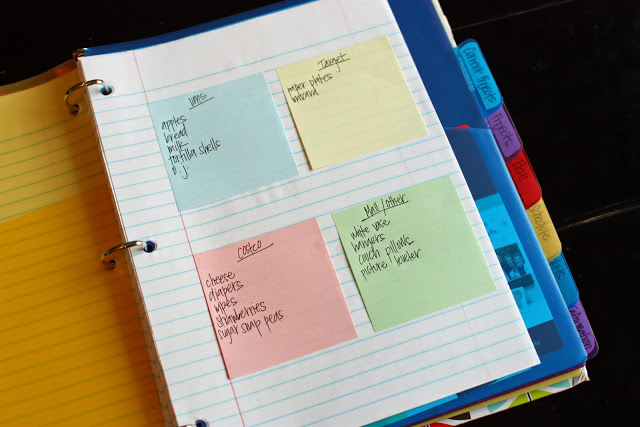 vons
apples
bread
milk
tortilla shells
o.j.
Target
paper plates
Costco
cheese
diapers
wipes
strawberries
sugar snap peas
Mall/other
white vase
hangers
couch pillows
picture leveler
Current Projects
Projects
Schedule
Information